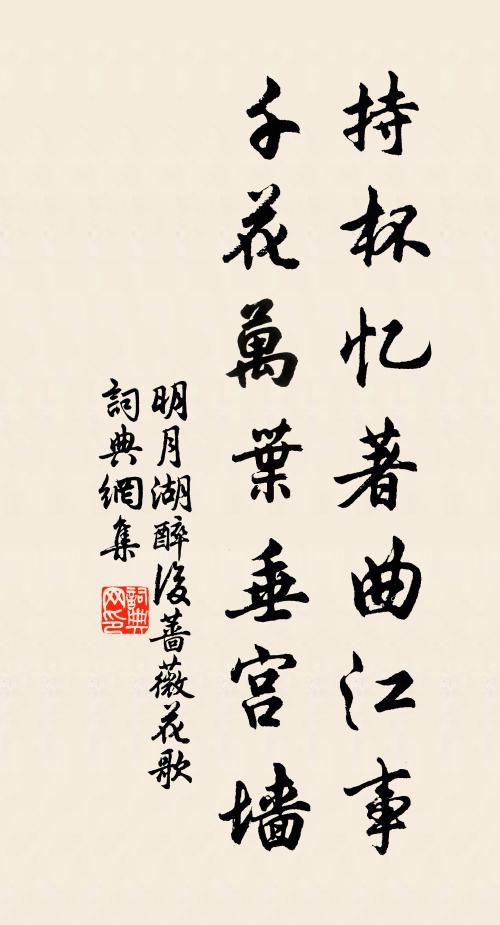 持杯忆著曲江事
千花萬葉垂宫墙
明月湖醉後蔷薇花歌
詞典網集
詞典网印